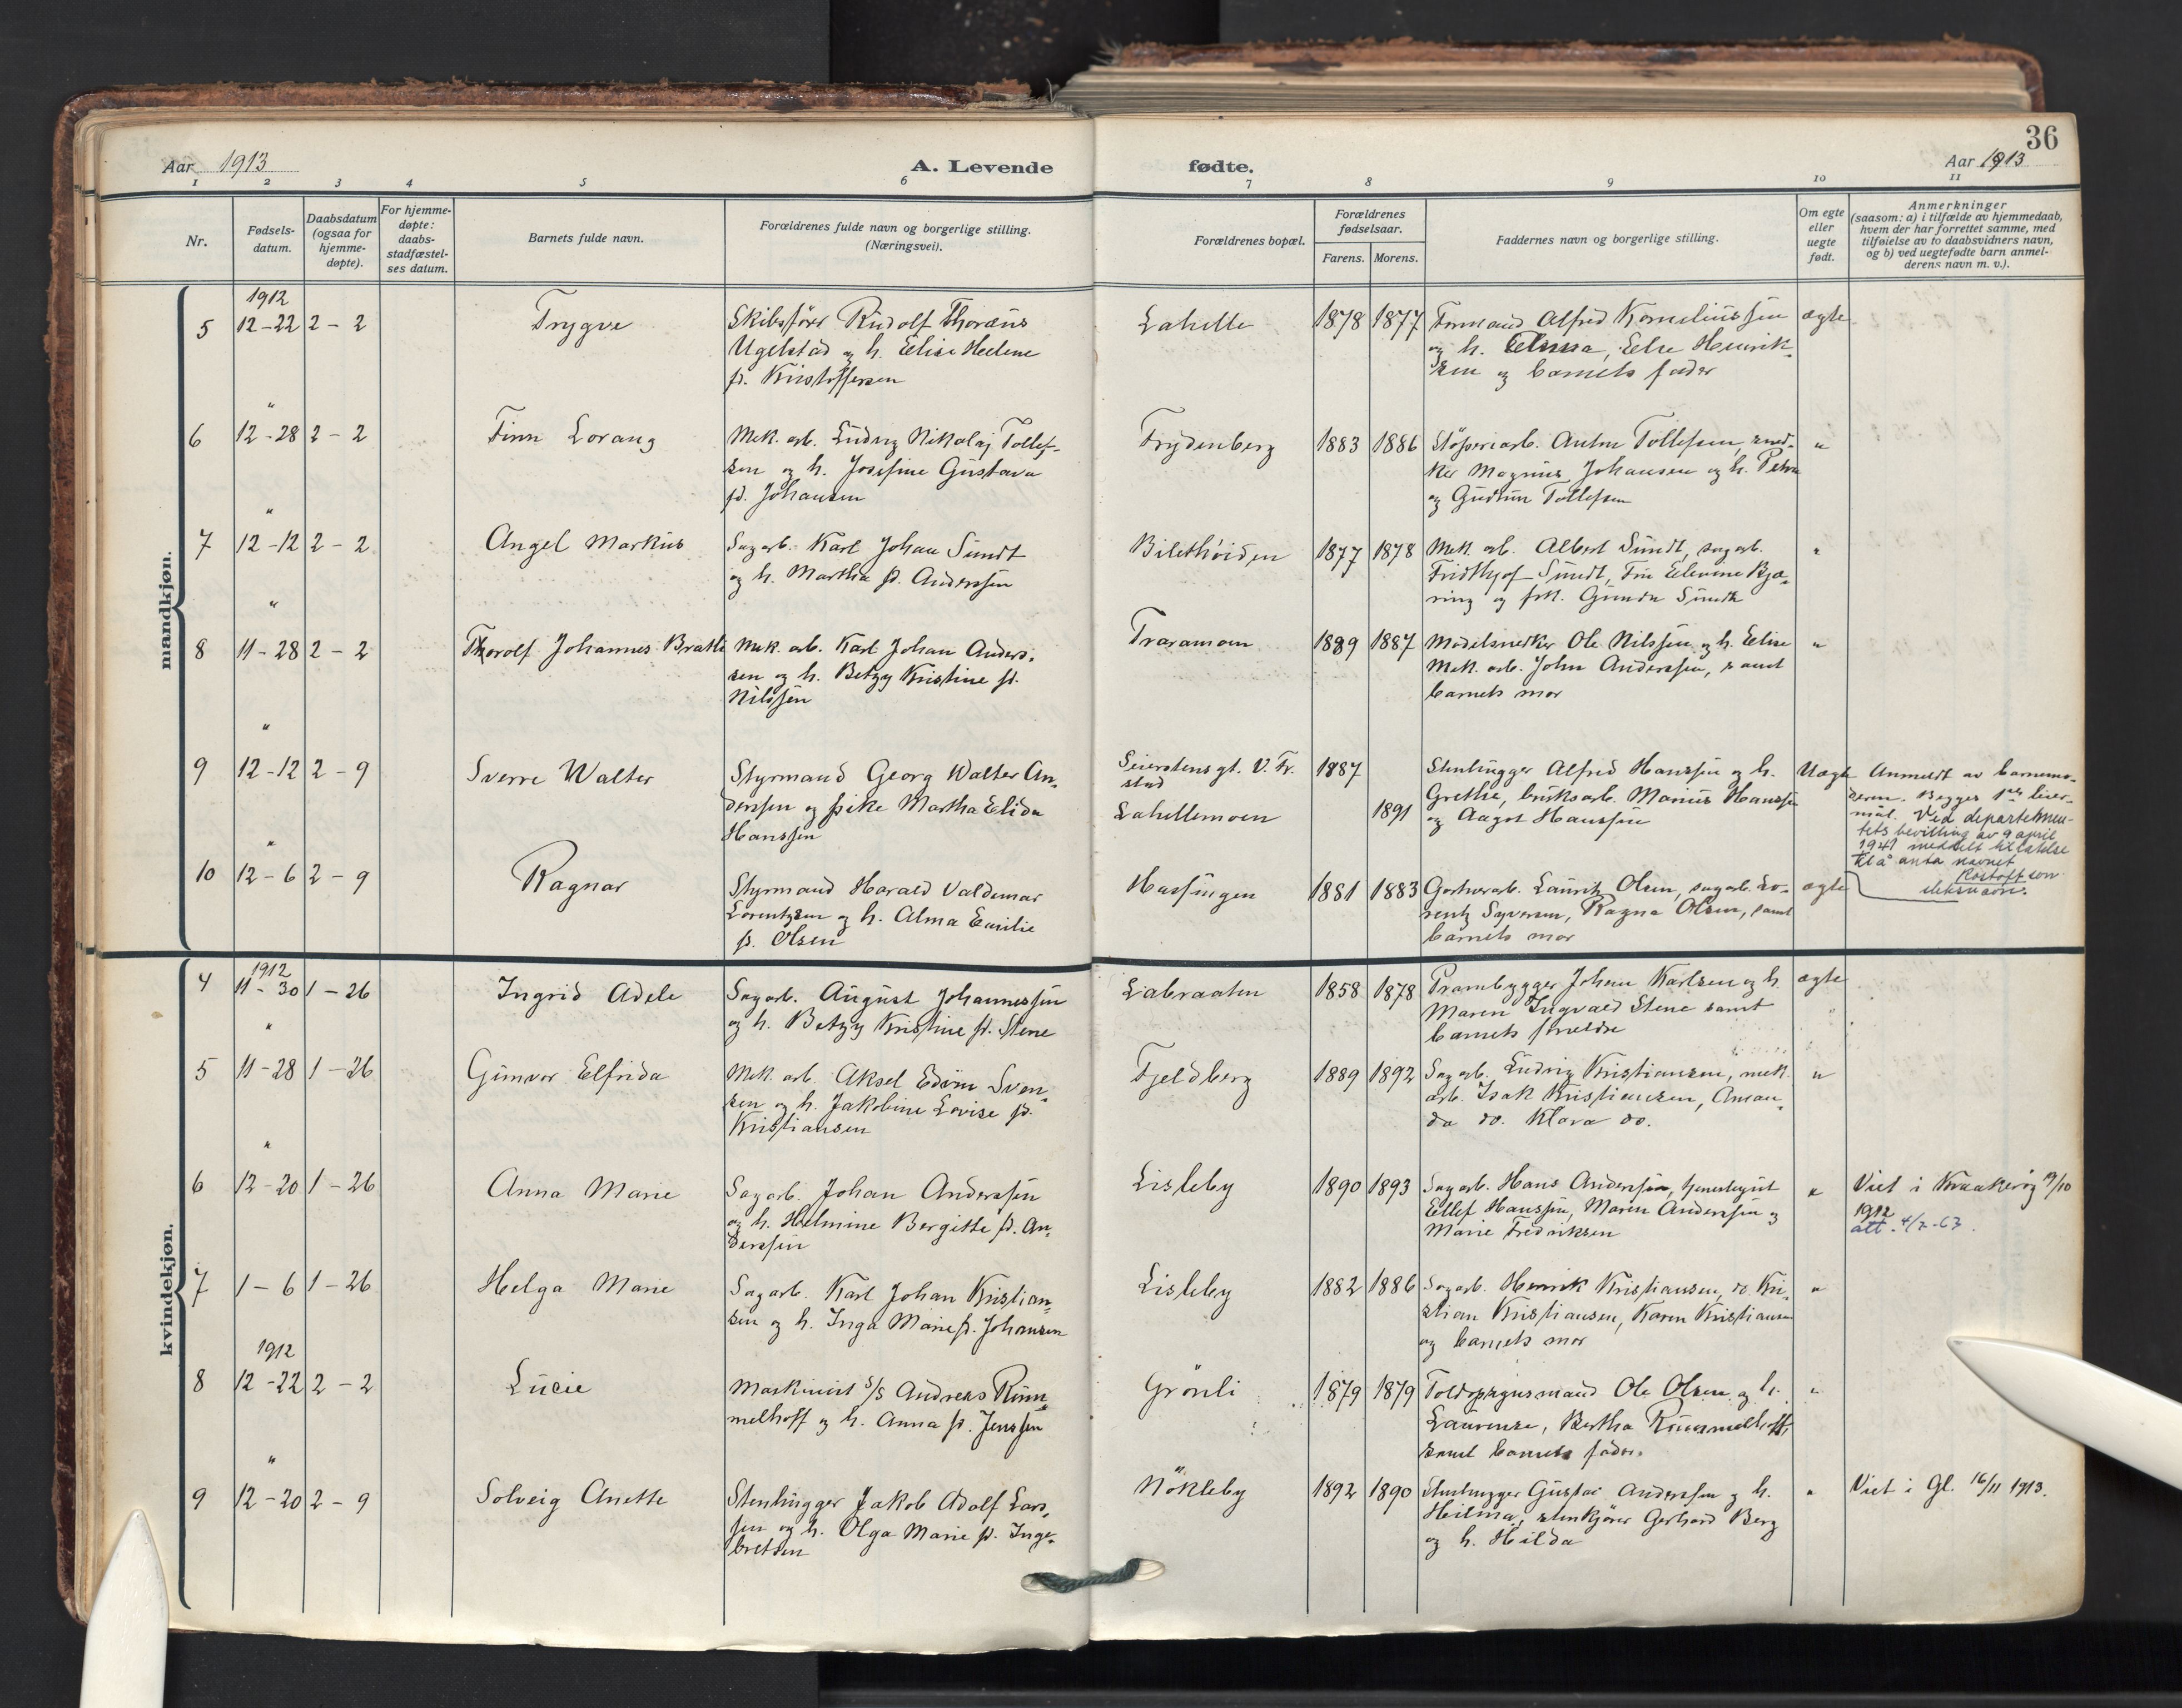 36
Aar 1913
A. Levende
fødte.
Aar 1913
1 2 3 4 5 6 7 8 9 10 11
Nr.
Fødsels-
datum.
Daabsdatum
(ogsaa for
hjemme-
døpte).
For hjemme-
døpte:
daabs-
stadfæstel-
ses datum.
Barnets fulde navn.
Forældrenes fulde navn og borgerlige stilling.
(Næringsvei).
Forældrenes bopæl.
Forældrenes
fødselsaar.
Farens. Morens.
Faddernes navn og borgerlige stilling.
Om egte
eller
uegte
født.
Anmerkninger
(saasom: a) i tilfælde av hjemmedaab,
hvem der har forrettet samme, med
tilføielse av to daabsvidners navn,
og b) ved uegtefødte barn anmel-
derens navn m. v.).
mandkjøn.
1912
5 12-22 2-2 Trygve
Skibsfører Rudolf Thoræus
Ugelstad og h. Elise Helene
f. Kristoffersen
Lahelle 1878 1877
Formand Alfred Korneliussen
og h. Elina, Else Henrik-
sen og barnets fader
ægte
"
6 12-28 2-2 Finn Lorang
Mek. arb. Ludvig Nikolaj Tollef-
sen og h. Josefine Gustava
f. Johansen
Frydenberg 1883 1886
Støperiarb. Anton Tollefsen, sned-
ker Magnus Johansen og h. Petra
og Gudrun Tollefsen
"
"
7 12-12 2-2 Angel Markus
Sagarb. Karl Johan Sundt
og h. Martha f. Anderssen
Bilethöiden 1877 1878
Mek. arb. Albert Sundt, sagarb.
Fridthjof Sundt, Fru Elevine Bjæ-
ring og frk. Gunda Sundt
"
"
8 11-28 2-2 Thorolf Johannes Bratli
Mek. arb. Karl Johan Anders-
sen og h. Betzy Kristine f.
Nilssen
Traramoen 1889 1887
Modelsnedker Ole Nilssen og h. Elise
Mek. arb. John Anderssen, samt
barnets mor
"
"
9 12-12 2-9 Sverre Walter
Styrmand Georg Walter An-
derssen og pike Martha Elida
Hanssen
Seierstensgt. V. Fr.
stad
Lahellemoen
1887
1891
Stenhugger Alfred Hanssen og h.
Grethe, bruksarb. Marius Hanssen
og Aagot Hanssen
Uægte
Anmeldt av barnemo-
deren. Begges 1ste leier-
mål. Ved departemen-
tets bevilling av 9 april
1941 meddelt tillatelse
til å anta navnet
Rostoff som
slektsnavn.
"
10 12-6 2-9 Ragnar
Styrmand Harald Valdemar
Lorentzen og h. Alma Emilie
f. Olsen
Hassingen 1881 1883
Gartnerarb. Lauritz Olsen, sagarb. Lo-
rentz Syversen, Ragna Olsen, samt
barnets mor
ægte
kvindekjøn.
1912
4 11-30 1-26 Ingrid Adele
Sagarb. August Johannessen
og h. Betzy Kristine f. Stene
Labraaten 1858 1878
Prambygger Johan Karlsen og h.
Maren Ingvald Stene samt
barnets forældre
ægte
"
5 11-28 1-26 Gunvor Elfrida
Mek. arb. Aksel Edvin Sven-
sen og h. Jakobine Lovise f.
Kristiansen
Fjeldberg 1889 1892
Sagarb. Ludvig Kristiansen, mek.
arb. Isak Kristiansen, Aman-
da do. Klara do.
"
"
6 12-20 1-26 Anna Marie
Sagarb. Johan Anderssen
og h. Helmine Bergitte f. An-
derssen
Lisleby 1890 1893
Sagarb. Hans Anderssen,
Ellef Hanssen, Maren Anderssen og
Marie Fredriksen
"
Viet i Kraakerøy 19/10
1912
att. 4/7-63.
7 1-6 1-26 Helga Marie
Sagarb. Karl Johan Kristian-
sen og h. Inga Marie f. Johansen
Lisleby 1882 1886
Sagarb. Henrik Kristiansen, do. Kri-
stian Kristiansen, Karen Kristiansen
og barnets mor
"
1912
8 12-22 2-2 Lucie
Maskinist s/s Andreas Rum-
melhoff og h. Anna f. Jenssen
Grönli 1879 1879
Toldopsynsmand Ole Olsen og h.
Laurense, Bertha Rummelhoff,
samt barnets fader.
"
"
9 12-20 2-9 Solveig Anette
Stenhugger Jakob Adolf Lars-
sen og h. Olga Marie f. Inge-
bretsen
Nökleby 1892 1890
Stenhugger Gustav Anderssen og h.
Helina, stenkjører Gerhard Berg
og h. Hilda
"
Viet i Gl. 16/11 1913.